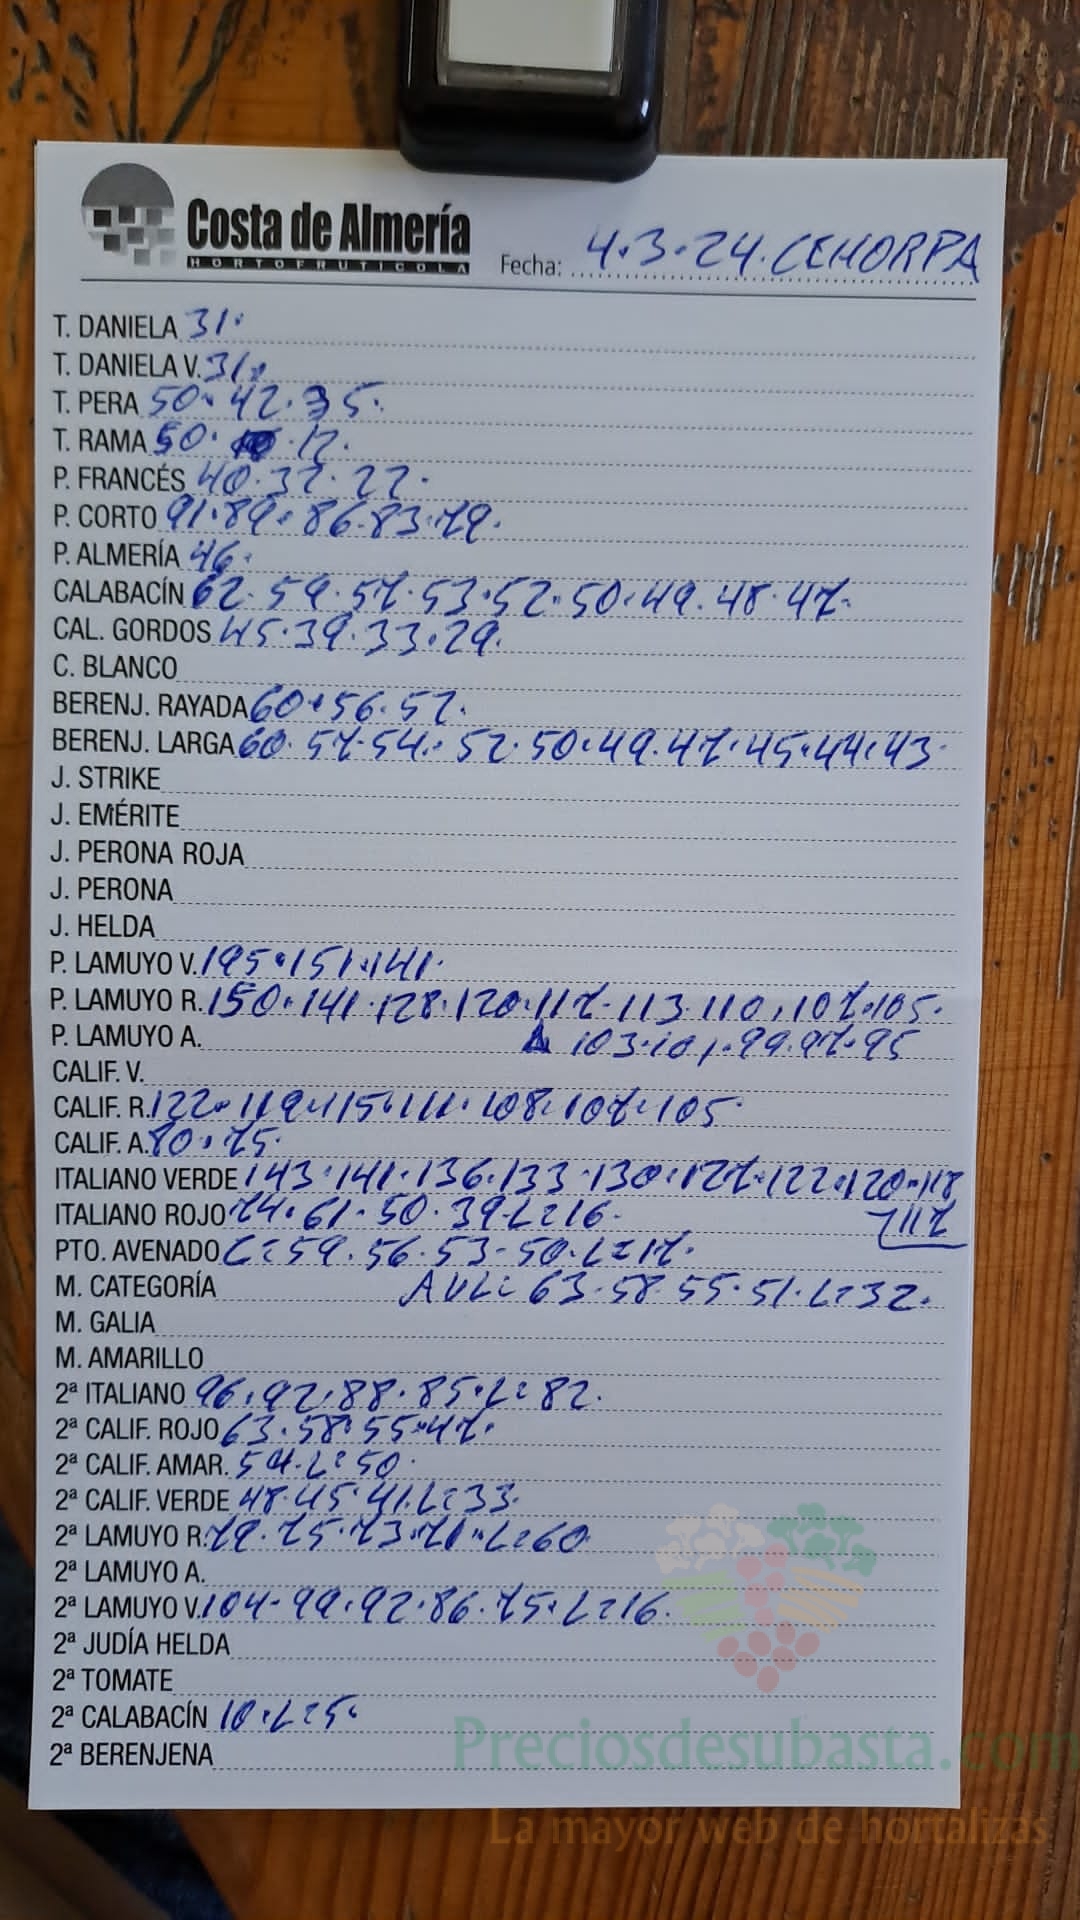 Costa de Almería
HORTOFRUTICOLA
Fecha: 4.3.24. CEHORPA
T. DANIELA 31.
T. DANIELA V. 31.
T. PERA 50. 42. 35.
T. RAMA 50. 12.
P. FRANCÉS 40. 32. 22.
P. CORTO 91. 89. 86. 83. 79.
P. ALMERÍA 46.
CALABACÍN 62. 59. 57. 53. 52. 50. 49. 48. 47.
CAL. GORDOS 45. 39. 33. 29.
C. BLANCO
BERENJ. RAYADA 60. 56. 52.
BERENJ. LARGA 60. 57. 54. 52. 50. 49. 47. 45. 44. 43.
J. STRIKE
J. EMÉRITE
J. PERONA ROJA
J. PERONA
J. HELDA
P. LAMUYO V. 195. 151. 141.
P. LAMUYO R. 150. 141. 128. 120. 117. 113. 110. 107. 105.
P. LAMUYO A. 103. 101. 99. 97. 95
CALIF. V.
CALIF. R. 122. 119. 115. 111. 108. 107. 105.
CALIF. A. 80. 75.
ITALIANO VERDE 143. 141. 136. 133. 130. 127. 122. 120. 118
ITALIANO ROJO 74. 61. 50. 39. L=16. 117
PTO. AVENADO C=59. 56. 53. 50. L=17.
M. CATEGORÍA AVL= 63. 58. 55. 51. L=32.
M. GALIA
M. AMARILLO
2ª ITALIANO 96. 92. 88. 85. L=82.
2ª CALIF. ROJO 63. 58. 55. 47.
2ª CALIF. AMAR. 54. L=50.
2ª CALIF. VERDE 48. 45. 41. L=33.
2ª LAMUYO R. 79. 75. 73. 71. L=60
2ª LAMUYO A.
2ª LAMUYO V. 104. 99. 92. 86. 75. L=16.
2ª JUDÍA HELDA
2ª TOMATE
2ª CALABACÍN 10. L=5.
2ª BERENJENA
Preciosdesubasta.com
La mayor web de hortalizas